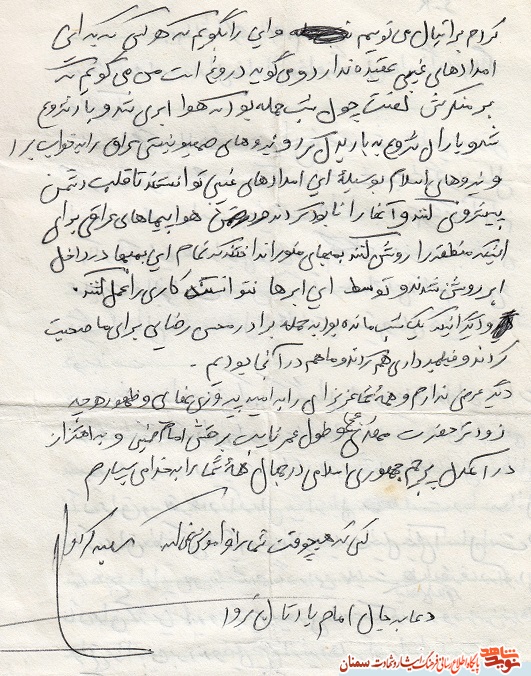 کردم برایتان می نویسم و این را بگویم که هر کس که به این
امدادهای غیبی عقیده ندارد و می گوید دروغ است من می گویم که
بر منکرش لعنت چون شب حمله بود که هوا ابری شد و باد شروع
شد و باران شروع به باریدن کرد و نیروهای صهیونیستی عراق را به خواب برد
و نیروهای اسلام بوسیله این امدادهای غیبی توانستند تا قلب دشمن
پیشروی کنند و آنها را نابود کردند هواپیماهای عراقی برای
اینکه منطقه را روشن کنند بمبهای منور انداختند که تمام این بمبها در داخل
ابر روشن شدند و توسط این ابرها نتوانستند کاری را عمل کنند.
و دیگر اینکه یک شب مانده بود به حمله برادر محسن رضایی برای ما صحبت
کردند و فیلمبرداری هم کردند و ما هم در آنجا بودیم.
دیگر عرضی ندارم و همه شما عزیزان را به امید پیروزی نهایی و ظهور هر چه
زودتر حضرت مهدی (عج) و طول عمر نایب برحقش امام خمینی و به اهتزاز
در آمدن پرچم جمهوری اسلامی در جهان همه شما را به خدا می سپارم
کسی که هیچوقت شما را فراموش نمی کند
دعا به جان امام یادتان نرود
نوید شاهد
پایگاه اطلاع رسانی فرهنگ ایثار و شهادت سمنان